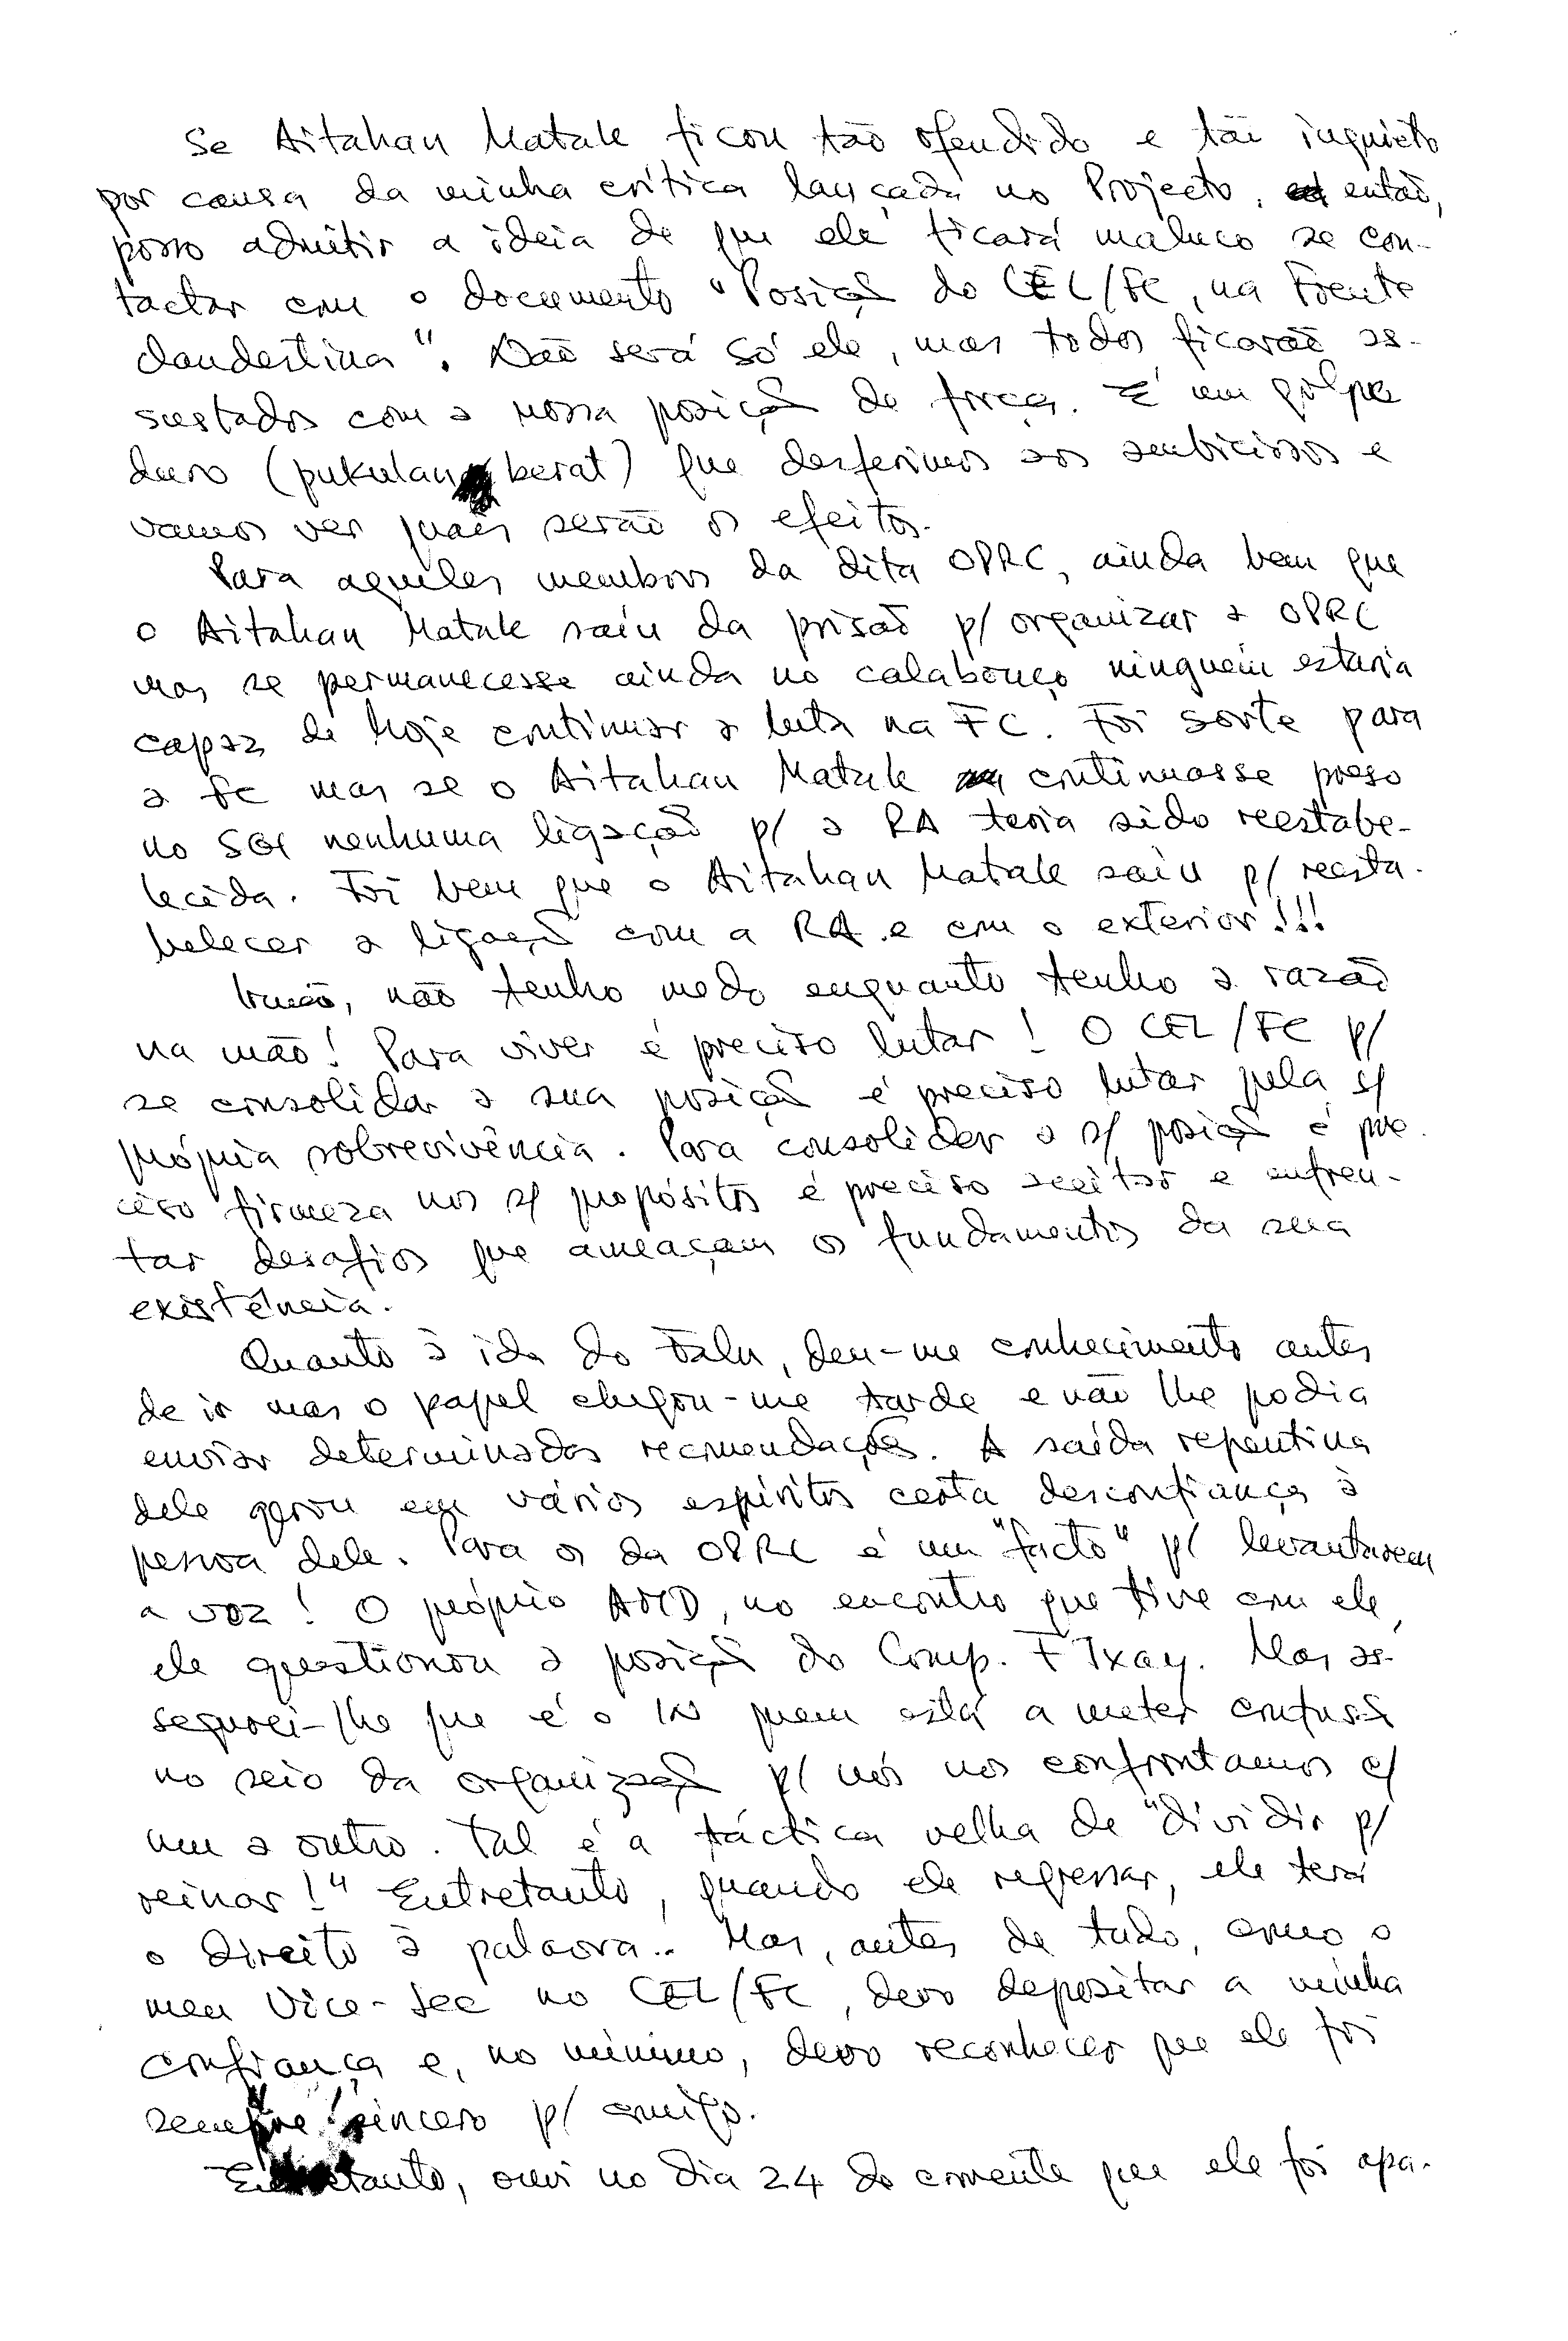 Se Aitahan Matak ficou tão ofendido e tão inquieto
por causa da minha crítica lançada no Projecto, então,
posso admitir a ideia de que ele ficará maluco se con-
tactar com o documento "Posição do CEL/FC, na Frente
clandestina". Não será só ele, mas todos ficarão as-
sustados com a nossa posição de força. É um golpe
duro (pukulan berat) que desferimos aos ambiciosos e
vamos ver quais serão os efeitos.
Para aqueles membros da dita OPRC, ainda bem que
o Aitahan Matak saiu da prisão p/ organizar a OPRC
mas se permanecesse ainda no calabouço ninguém estaria
capaz de hoje continuar a luta na FC. Foi sorte para
a FC mas se o Aitahan Matak continuasse preso
no SGI nenhuma ligação p/ a RA teria sido reestabe-
lecida. Foi bem que o Aitahan Matak saiu p/ reesta-
belecer a ligação com a RA e com o exterior!!!
Irmão, não tenho medo enquanto tenho a razão
na mão! Para viver é preciso lutar! O CEL/FC p/
se consolidar a sua posição é preciso lutar pela s/
própria sobrevivência. Para consolidar a s/ posição é pre-
ciso firmeza nos s/ propósitos é preciso aceitar e enfren-
tar desafios que ameaçam os fundamentos da sua
existência.
Quanto à ida do Falu, deu-me conhecimento antes
de ir mas o papel chegou-me tarde e não lhe podia
enviar determinadas recomendações. A saída repentina
dele gerou em vários espíritos certa desconfiança à
pessoa dele. Para os da OPRC é um "facto" p/ levantarem
a voz! O próprio AMD, no encontro que tive com ele,
ele questionou a posição do Comp. F Txay. Mas as-
segurei-lhe que é o IN quem está a meter confusão
no seio da organização p/ nós nos confrontamos c/
um a outro. Tal é a táctica velha de "dividir p/
reinar!" Entretanto, quando ele regressar, ele terá
o direito à palavra.. Mas, antes de tudo, como o
meu Vice-Sec no CEL/FC, devo depositar a minha
confiança e, no mínimo, devo reconhecer que ele foi
sempre sincero p/ comigo.
Entretanto, ouvi no dia 24 do corrente que ele foi apa-